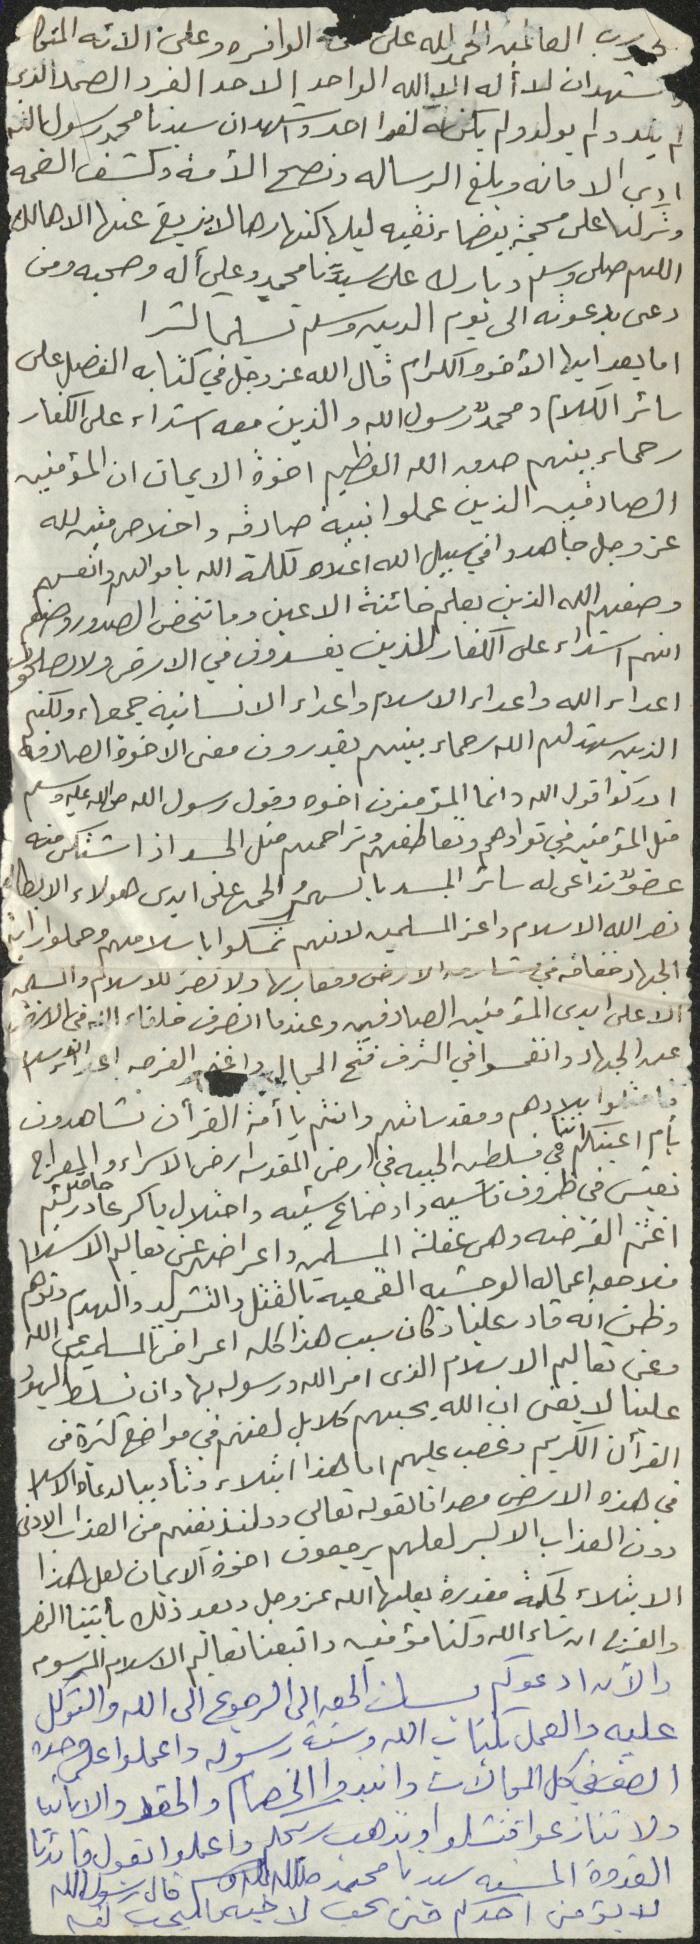 رب العالمين الحمد لله على الوافره وعلى الآئه المتوالية
نشهد ان لا أله الا الله الواحد الاحد الفرد الصمد الذى
لم يلد ولم يولد ولم يكن له كفوا احد واشهد ان سيدنا محمد رسول الله
ادى الامانه وبلغ الرساله ونصح الأمة وكشف الغمه
وتركنا على محجة بيضاء نقيه ليلها كنهارها لا يزيغ عنها الا هالك
اللهم صلى وسلم وبارك على سيدنا محمد وعلى أله وصحبه ومن
دعى بدعوته الى يوم الدين وسلم تسليما كثيرا
اما بعد ايها الأخوه الكرام قال الله عز وجل في كتابه المفضل على
سائر الكلام « محمد رسول الله والذين معه اشداء على الكفار
رحماء بينهم صدق الله العظيم اخوة الايمان ان المؤمنين
الصادقين الذين عملوا بنية صادقه واخلاص متين لله
عز وجل جاهدوا في سبيل الله اعلاء لكلمة الله باموالهم وانفسهم
وصفهم الله الذين يعلم خائنة الاعين وما تخفى الصدور وصفهم
انهم اشداء على الكفار الذين يفسدون في الارض ولا يصلحون
اعداء الله واعداء الاسلام واعداء الانسانية جمعاء ولكنهم
الذين شهد لهم الله رحماء بينهم يقدرون معنى الاخوة الصادقه
ادركوا قول الله « انما المؤمنون اخوه وقول رسول الله صلى الله عليه وسلم
مثل المؤمنين في توادهم وتعاطفهم وتراحمهم مثل الجسد اذا اشتكى منه
عضو تداعى له سائر الجسد بالسهر والحمى على ايدى هولاء الابطال
نصر الله الاسلام واعز المسلمين لانهم تمسكوا باسلامهم وحملوا راية
الجهاد خفاقه في مشارق الارض ومغاربها ولا نصر للاسلام والمسلمين
الا على ايدى المؤمنين الصادقين وعندما انصرف خلفاء الله في الارض
عن الجهاد وانغمسوا في الترف فتح المجال واغتنم الفرصه اعداء الاسلام
فاحتلوا بلادهم ومقدساتهم وانتم يا أمة القرأن تشاهدون
بأم اعينكم اننا في فلسطين الحبيبه في الارض المقدسه ارض الاسراء والمعراج
نعيش في ظروف قاسيه واوضاع سيئه واحتلال ماكر غادر حاقد لئيم
اغتنم الفرصه وهى غفلة المسلمين واعراضهم عن تعاليم الاسلام
فلاحق اعماله الوحشيه القمعيه بالقتل والتشريد والهدم
وظن انه قادر علينا وكان سبب هذا كله اعراض المسلمين عن الله
وعن تعاليم الاسلام الذى امر الله ورسوله بها وان تسلط اليهود
علينا لا يعنى ان الله يحبهم كلا بل لعنهم في مواضع كثيرة فى
القرأن الكريم وغضب عليهم اما هذا ابتلاء وتأديبا لدعاة الاسلام
في هذه الارض مصداقا لقوله تعالى « ولنذيقنهم من العذاب الادنى
دون العذاب الاكبر لعلهم يرجعون اخوة الايمان لعل هذا
الابتلاء لحكمة مقدرة يعلمها الله عز وجل وبعد ذلك يأتينا النصر
والفرج ان شاء الله وكنا مؤمنين واتبعنا تعاليم الاسلام المرسومه
والأن ادعوكم بلسان الحق الى الرجوع الى الله والتوكل
عليه والعمل بكتاب الله وسنة رسوله واعملوا على وحدة
الصف في كل المجالات وانبذوا الخصام والحقد والانانيه
ولا تنازعوا فتفشلوا وتذهب ريحكم واعملوا بقول قائدنا
القدوة الحسنه سيدنا محمد صلى الله عليه وسلم قال رسول الله
لا يؤمن احدكم حتى يحب لاخيه ما يحب لنفسه